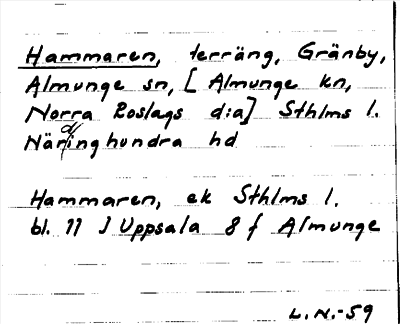 Hammaren, terräng, Gränby,
Almunge sn, [ Almunge kn,
Norra Roslags d:a] Sthlms l.
Närdinghundra hd
Hammaren, ek Sthlms l.
bl. 77 J Uppsala 8 f Almunge
L.N.-59